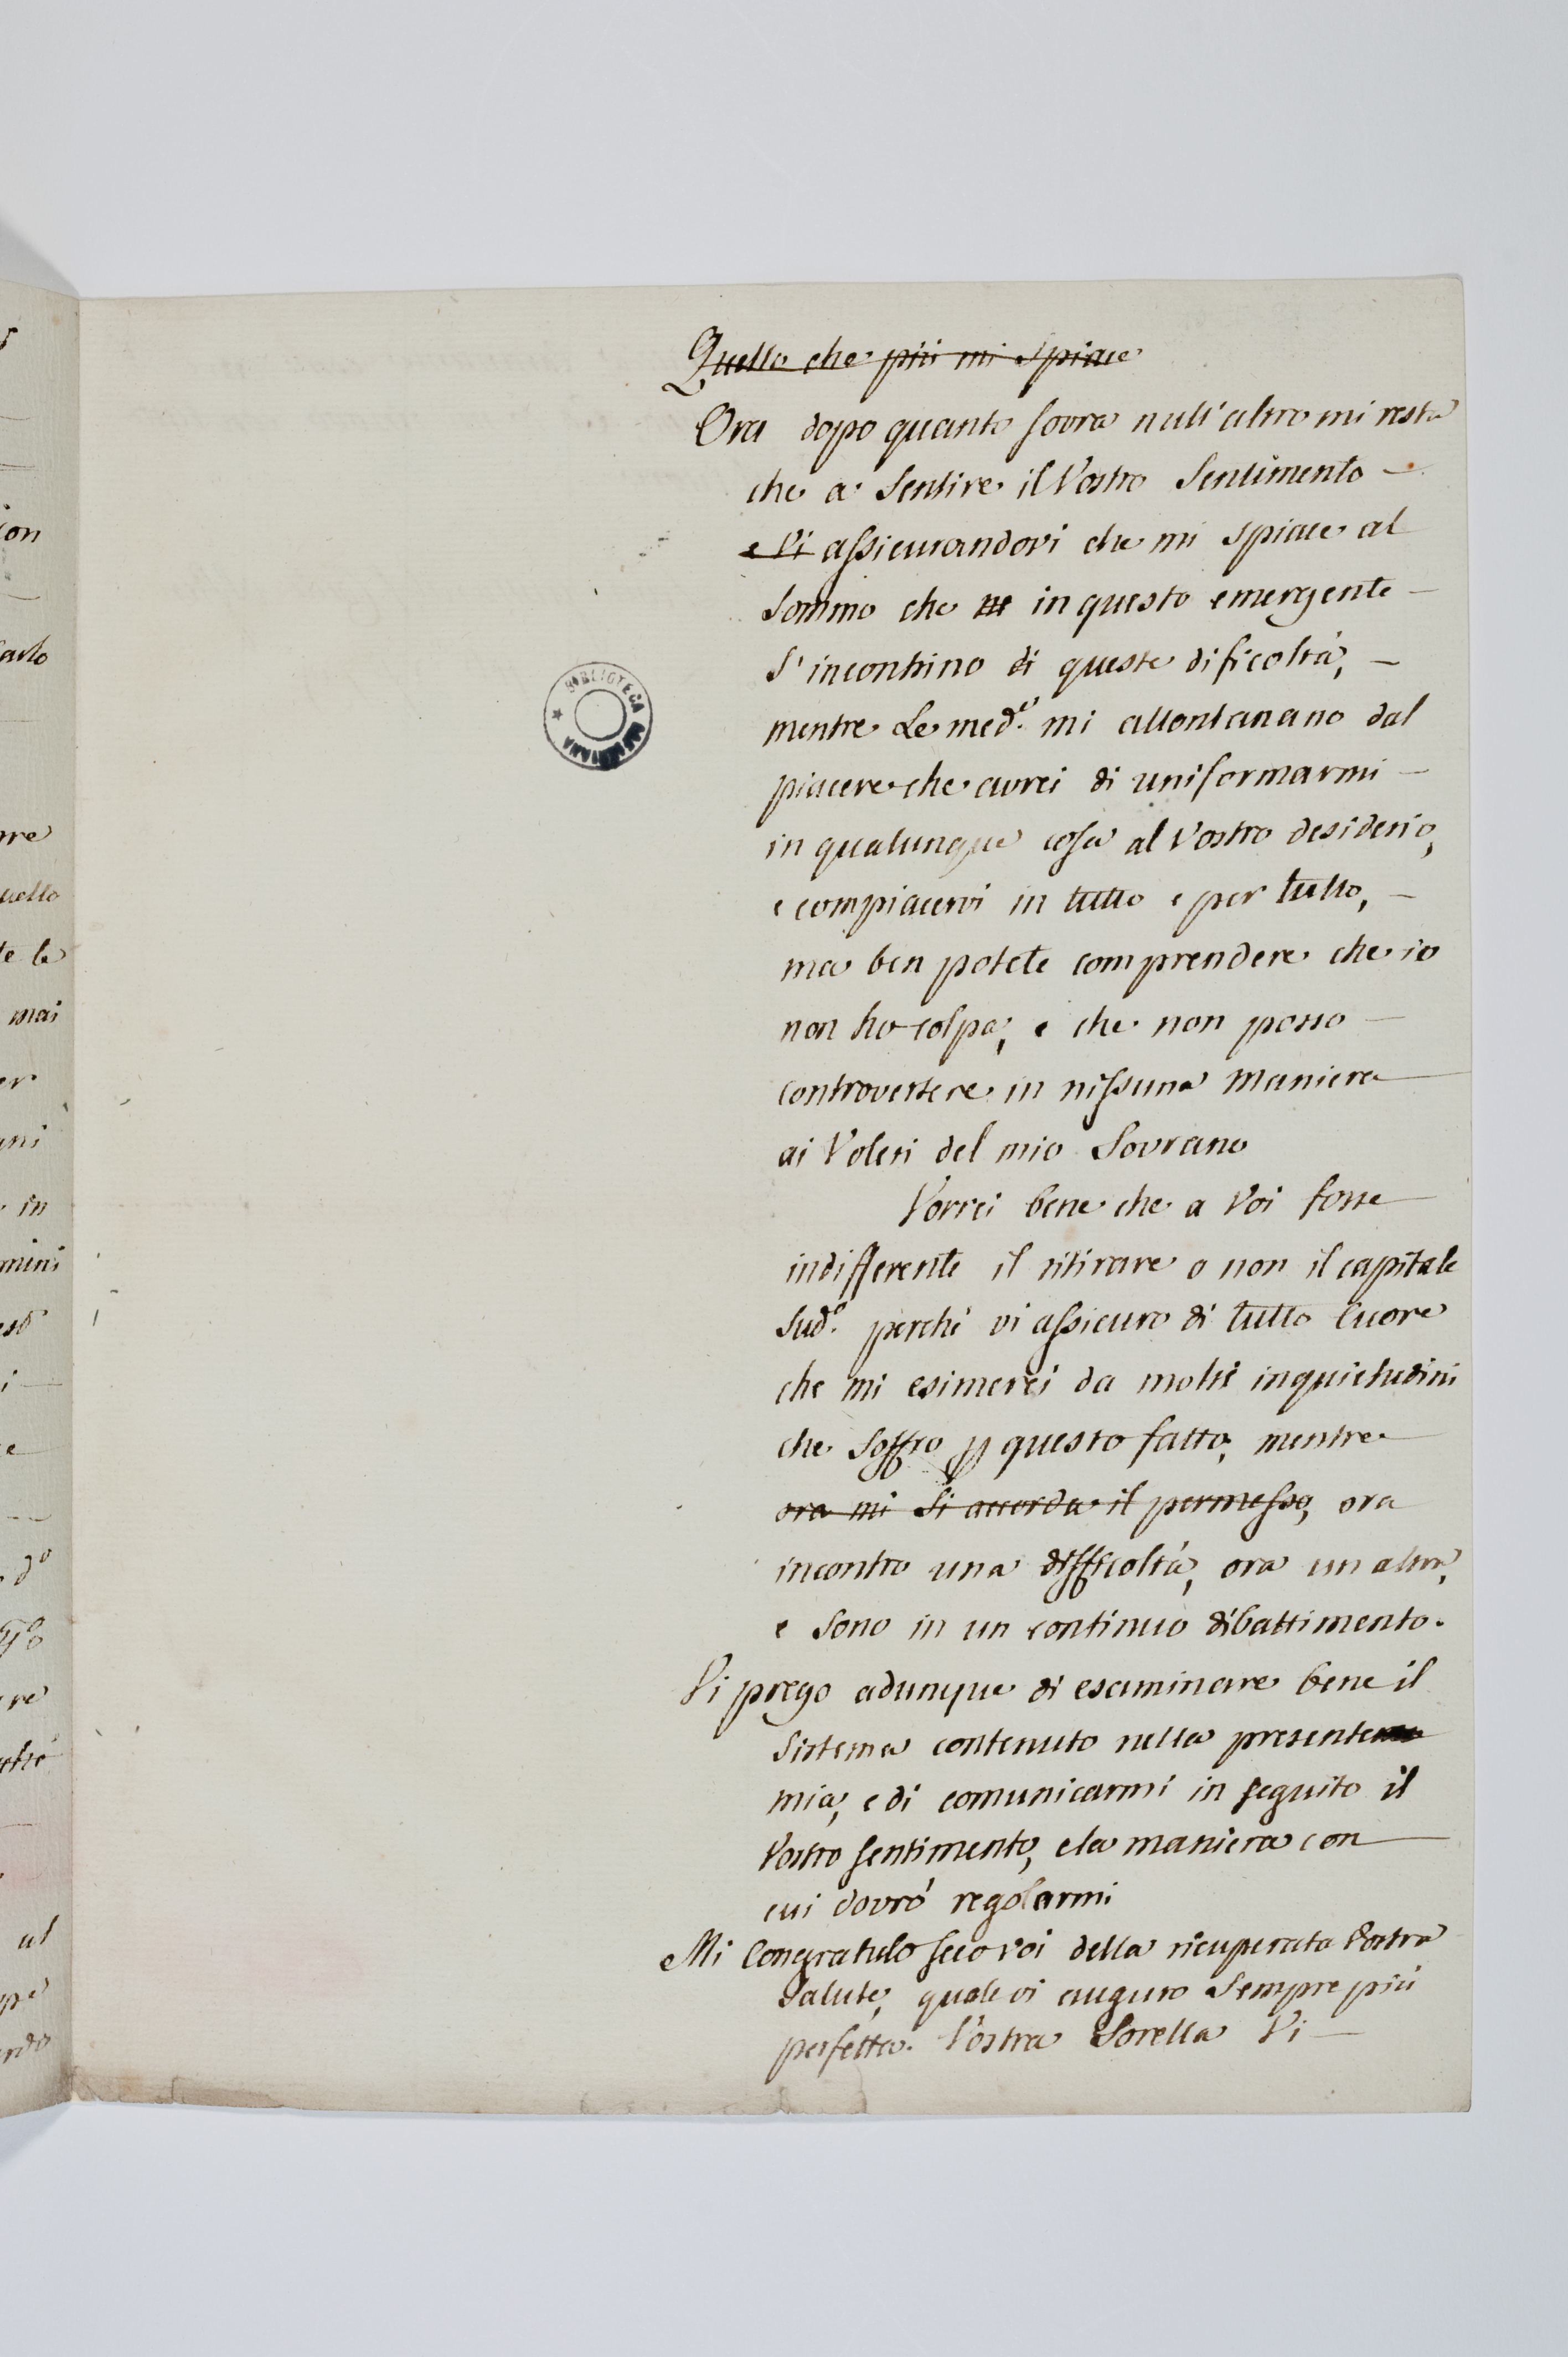 Quello che più mi spiace
Ora dopo quanto sovra null'altro mi resta
che a Sentire il Vostro Sentimento —
e Vi assicurandovi che mi spiace al
Sommo che in questo emergente —
S'incontrino di queste dificoltà, —
mentre Le med.e mi allontanano dal
piacere che avrei di uniformarmi —
in qualunque cosa al Vostro desiderio,
e compiacervi in tutto e per tutto, —
ma ben potete comprendere che io
non ho colpa, e che non posso —
controvertere in nissuna maniera
ai Voleri del mio Sovrano
Vorrei bene che a Voi fosse
indifferente il ritirare o non il capitale
Sud.o perchè vi assicuro di tutto Cuore
che mi esimerei da molte inquietudini
che Soffro p questo fatto, mentre
ora mi Si accorda il permesso, ora
incontro una difficoltà, ora un altra,
e Sono in un continuo dibattimento.
Vi prego adunque di esaminare bene il
Sistema contenuto nella presente
mia, e di comunicarmi in seguito il
Vostro sentimento, e la maniera con
cui dovrò regolarmi
Mi Congratulo seco voi della ricuperata Vostra
Salute, quale vi auguro Sempre più
perfetta. Vostra Sorella Vi —
BIBLIOTECA
on
arlo
uello
te le
mai
er
in
mini
re
al